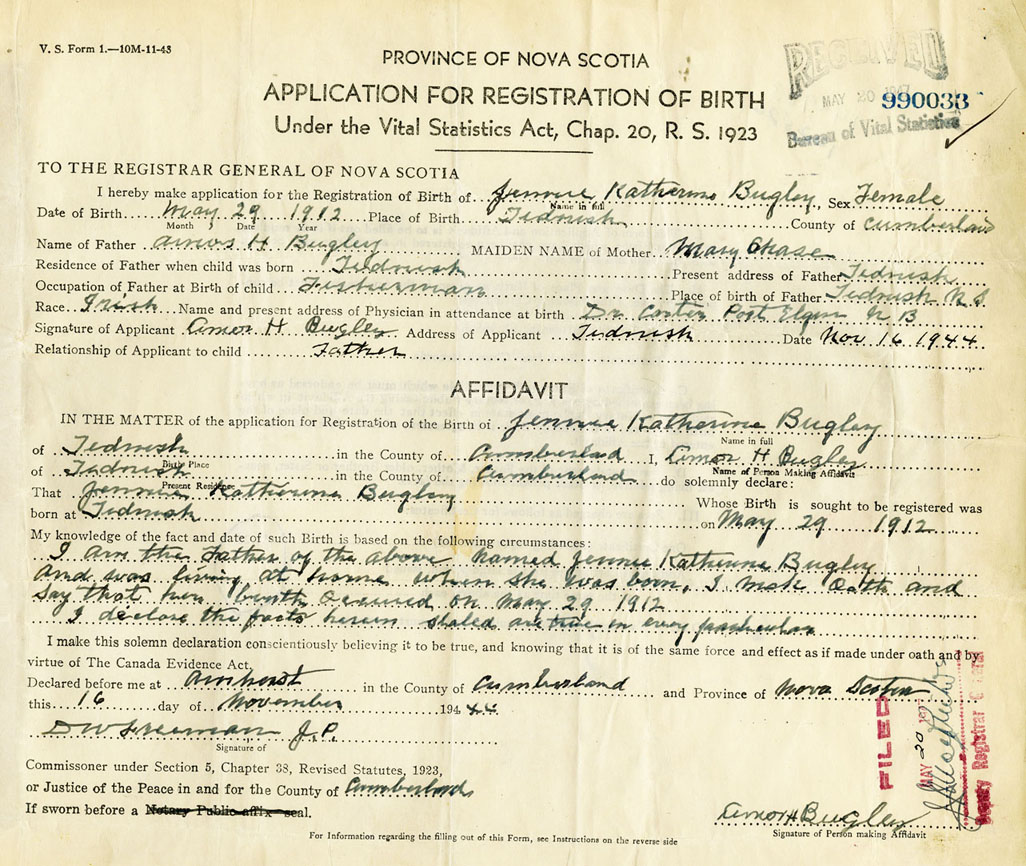 V. S. Form 1.—10M-11-43
PROVINCE OF NOVA SCOTIA
RECEIVED
MAY 20 1947
990033
Bureau of Vital Statistics
APPLICATION FOR REGISTRATION OF BIRTH
Under the Vital Statistics Act, Chap. 20, R. S. 1923
TO THE REGISTRAR GENERAL OF NOVA SCOTIA
I hereby make application for the Registration of Birth of Jennie Katherine Bugley, Sex Female
Name in full
Date of Birth May 29 1912 Place of Birth Tidnish County of Cumberland
Month Date Year
Name of Father Amos H Bugley MAIDEN NAME of Mother Mary Chase
Residence of Father when child was born Tidnish Present address of Father Tidnish
Occupation of Father at Birth of child Fisherman Place of birth of Father Tidnish N.S.
Race Irish Name and present address of Physician in attendance at birth Dr. Carter Port Elgin N B
Signature of Applicant Amos H Bugley Address of Applicant Tidnish Date Nov 16 1944
Relationship of Applicant to child Father
AFFIDAVIT
IN THE MATTER of the application for Registration of the Birth of Jennie Katherine Bugley
Name in full
of Tidnish in the County of Cumberland I, Amos H Bugley
Birth Place Name of Person Making Affidavit
of Tidnish in the County of Cumberland do solemnly declare:
Present Residence
That Jennie Katherine Bugley Whose Birth is sought to be registered was
born at Tidnish on May 29 1912
My knowledge of the fact and date of such Birth is based on the following circumstances:
I am the Father of the above named Jennie Katherine Bugley
and was living at home when she was born, I make Oath and
say that her birth occured on May 29 1912
I declare the facts herein stated are true in every particular
I make this solemn declaration conscientiously believing it to be true, and knowing that it is of the same force and effect as if made under oath and by
virtue of The Canada Evidence Act.
Declared before me at Amherst in the County of Cumberland and Province of Nova Scotia
this 16 day of November 194 44
D W Freeman J.P.
Signature of
Commissoner under Section 5, Chapter 38, Revised Statutes, 1923,
or Justice of the Peace in and for the County of Cumberland
If sworn before a Notary Public affix seal.
Amos H Bugley
Signature of Person making Affidavit
For Information regarding the filling out of this Form, see Instructions on the reverse side
FILED
MAY 20
Deputy Registrar General